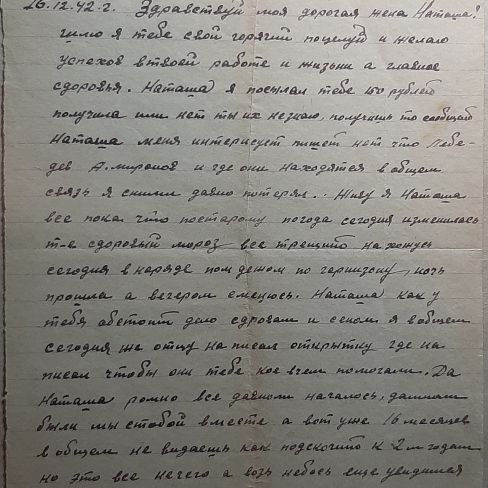 26.12.42.г. Здравствуй моя дорогая жена Наташа!
шлю я тебе свой горячий поцелуй и желаю
успехов в твоей работе и жизни а главное
здоровья. Наташа я посылал тебе 100 рублей
получила или нет ты их незнаю, получишь то сообщай
Наташа меня интересует пишет нет что Лебе-
дев А. миронов и где они находятся в общем
связь я сними давно потерял.. Живу я Наташа
все пока что постарому погода сегодня изменилась
т-е здоровый мороз все трещит нахожусь
сегодня в наряде пом дежом по гарнизону, ночь
прошла а вечером сменюсь. Наташа как у
тебя обстоит дело сдровам и сеном. я вобщем
сегодня же отцу написал открытку где на
писал чтобы они тебе кое вчем помогали. Да
Наташа ровно все давно началось,
были мы стобой вместе а вот уже 16 месяцев
вобщем не видаешь как подскочит к 2м годам
но это все нечего а возь небось еще увидимся